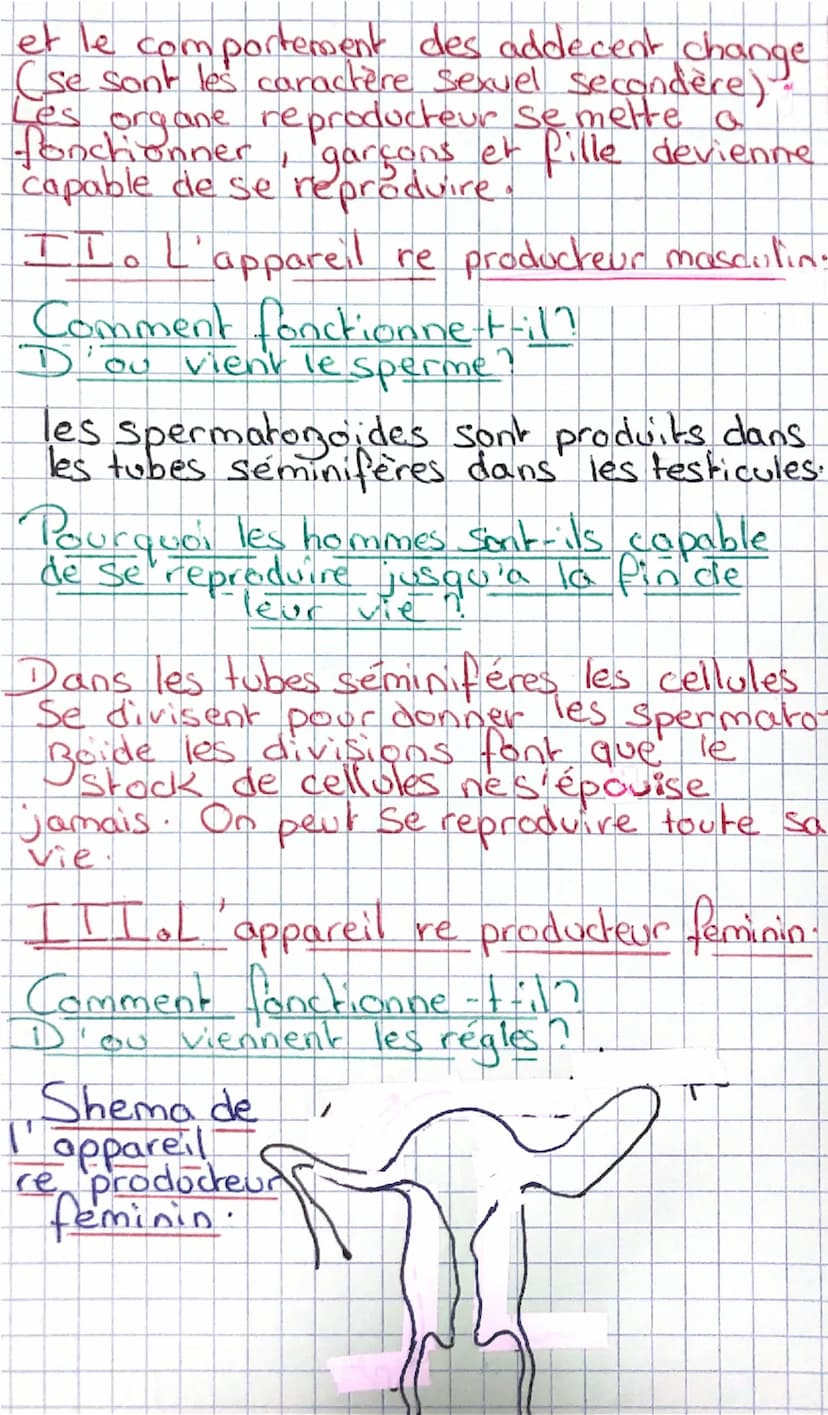 et le comportement des addecent change
(se sont les caractère sexuel secondère).
Les organe reproducteur se mette a
fonctionner, garçons et fille devienne
capable de se reproduire.
II. L'appareil re producteur masculin.
Comment fonctionne-t-il?
D'ou vient le sperme?
les spermatozoides sont produits dans
les tubes séminifères dans les testicules.
Pourquoi les hommes sont-ils capable
de se reproduire jusqu'a la fin de
leur vie ?
Dans les tubes séminiféres les cellules
se divisent pour donner les spermato-
zoide les divisions font que le
stock de cellules ne s'épouise
jamais. On peut se reproduire toute sa
vie.
III. L'appareil re producteur féminin.
Comment fonctionne-t-il?
D'ou viennent les régles?
Shema de
l'appareil
re producteur
féminin.